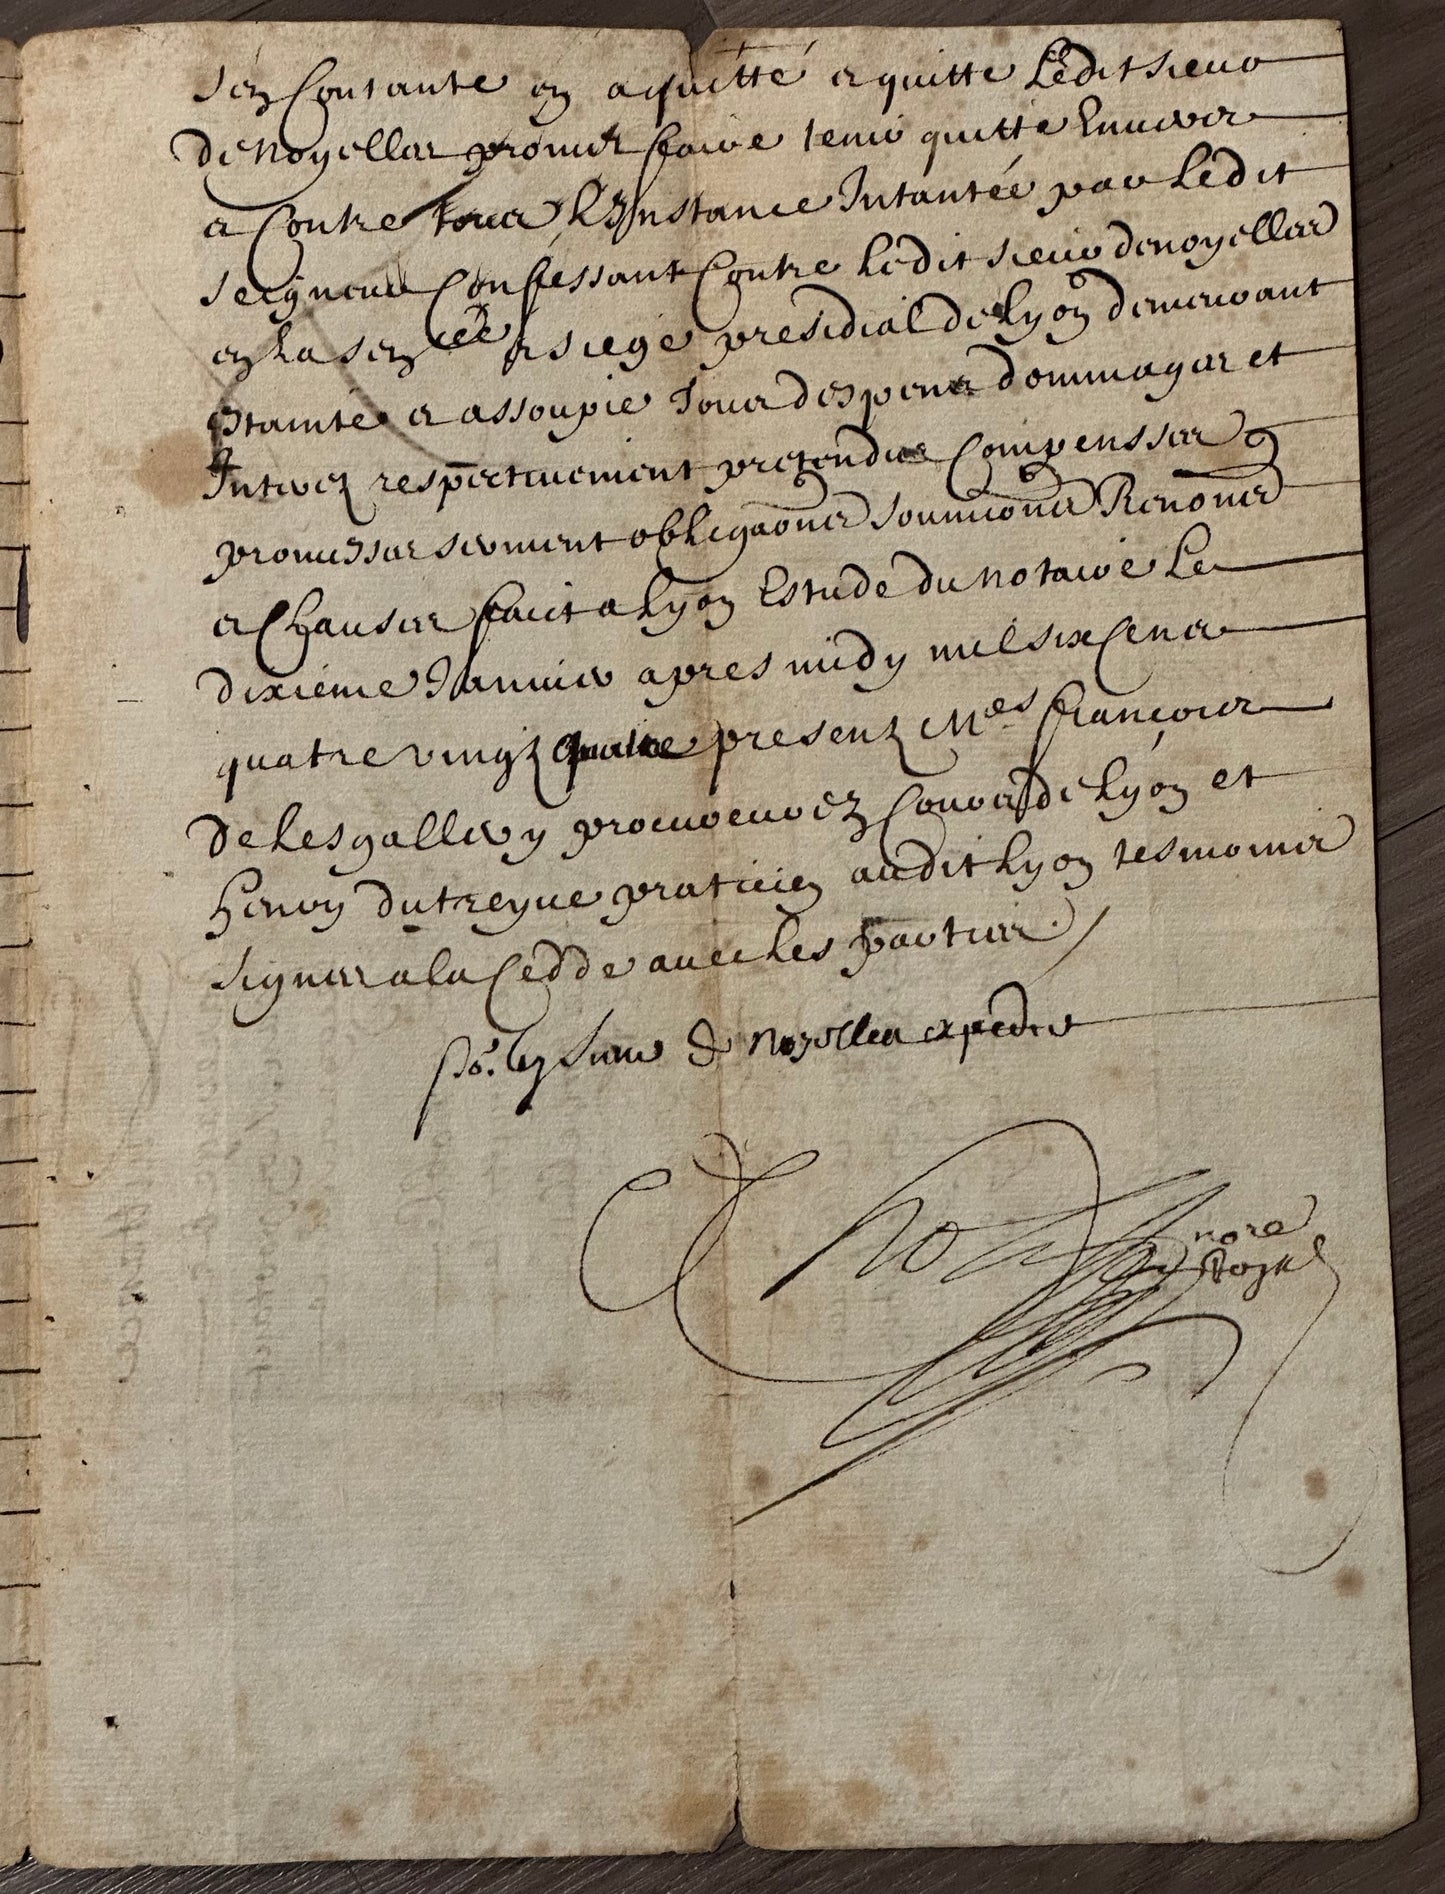 s'en contante en a quitté et quitte ledit sieur
de noyelles promet faire tenir quitte Envers
et contre tous L'Instance Intantée par ledit
seigneur confessant contre ledit sieur de noyelles
en la sen.cée et siege presidial de Lyon demeurant
estainte et assoupie tous despens dommages et
Interez respectivement pretendus compensser
promesses serment obligaõns soumiõns Renõns
et clauses fait a Lyon Estude du notaire Le
dixieme Janvier apres midy mil six cens
quatre vingz quatre presenz Mes françois
de Lesgallery procureur ez cours de Lyon et
henry dutreyve praticien audit Lyon tesmoins
signez a la cedde avec les parties.
de noyelles expedié